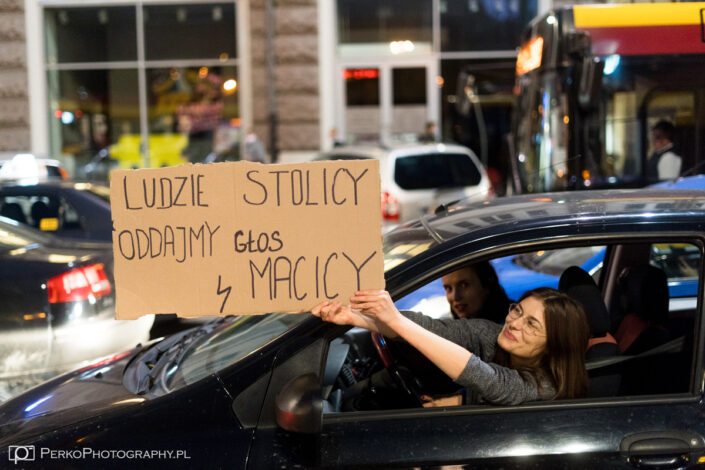 LUDZIE STOLICY
ODDAJMY GŁOS
MACICY
PERKOPHOTOGRAPHY.PL